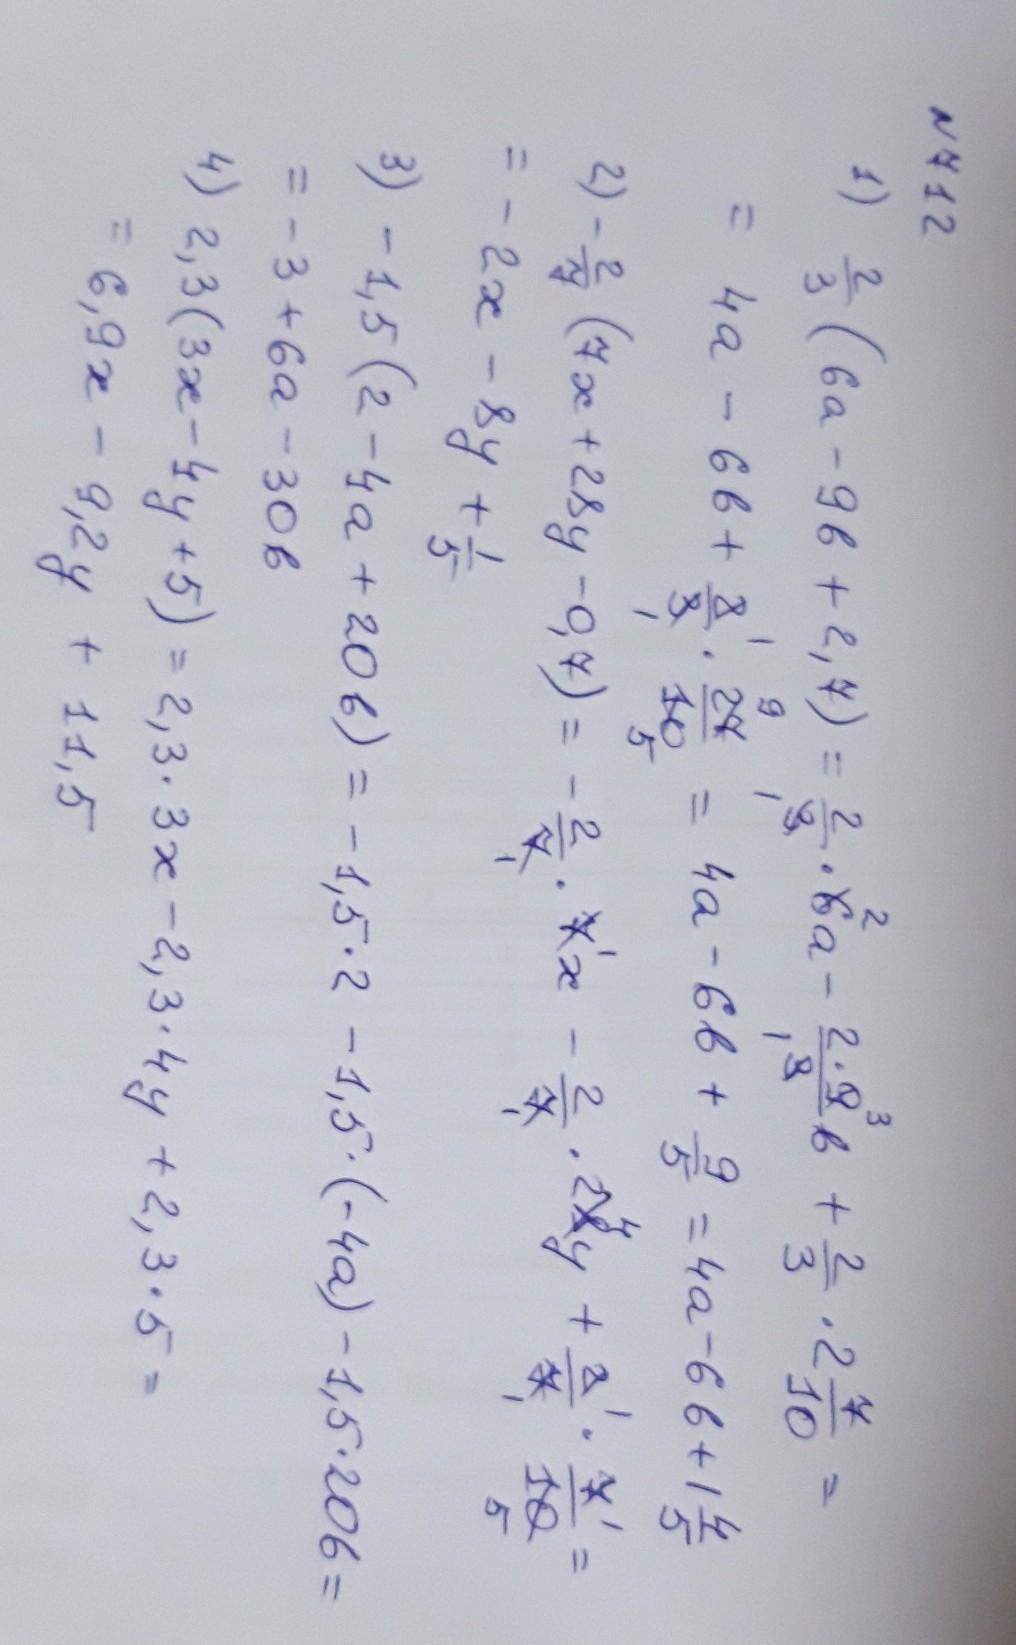 № 712
1) 2/3 (6a - 9в + 2,7) = 2/3 · 6a - 2·9/3 в + 2/3 · 2 7/10 =
= 4a - 6в + 2/3 · 27/10 = 4a - 6в + 9/5 = 4a - 6в + 1 4/5
2) - 2/7 (7x + 28y - 0,7) = - 2/7 · 7x - 2/7 · 28y + 2/7 · 7/10 =
= - 2x - 8y + 1/5
3) - 1,5 (2 - 4a + 20в) = - 1,5 · 2 - 1,5 · (-4a) - 1,5 · 20в =
= - 3 + 6a - 30в
4) 2,3 (3x - 4y + 5) = 2,3 · 3x - 2,3 · 4y + 2,3 · 5 =
= 6,9x - 9,2y + 11,5